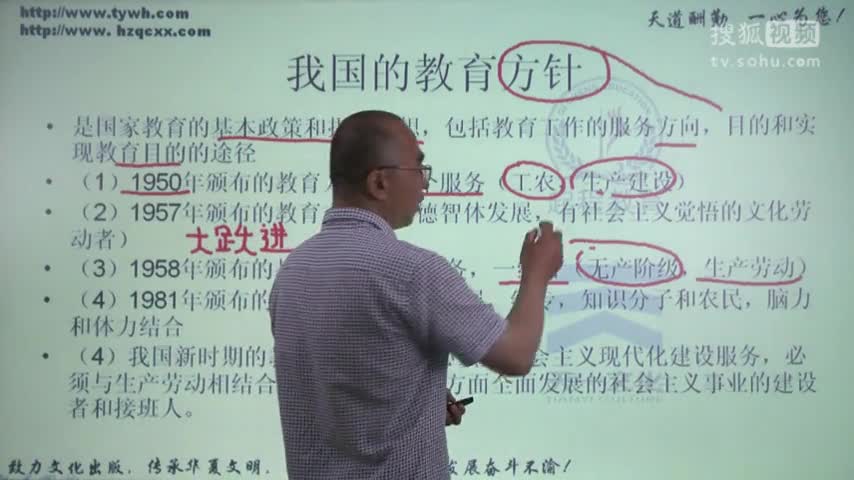 http://www.tywh.com
http://www.hzqcxx.com
天道酬勤 一心为您!
搜狐视频
tv.sohu.com
我国的教育方针
• 是国家教育的基本政策和指 想，包括教育工作的服务方向，目的和实
现教育目的的途径
• （1）1950年颁布的教育 个服务（工农，生产建设）
• （2）1957年颁布的教育 德智体发展，有社会主义觉悟的文化劳
动者）
大跃进
• （3）1958年颁布的 务，一结合（无产阶级，生产劳动）
• （4）1981年颁布的 专，知识分子和农民，脑力
和体力结合
• （4）我国新时期的 会主义现代化建设服务，必
须与生产劳动相结合 方面全面发展的社会主义事业的建设
者和接班人。
TIANYI CULTURE
致力文化出版，传承华夏文明， 发展奋斗不渝！